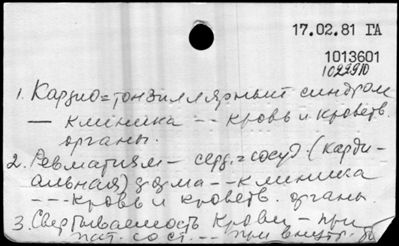 17.02.81 ГА
1013601
1022910
1. Кардио=тонзиллярный синдром
— клиника -- кровь и кроветв.
органы.
2. Ревматизм — серд.=сосуд (карди-
альная) форма -- клиника
--- кровь и кроветв. органы.
3. Свертываемость крови — при
пат. сост. -- при внутр.